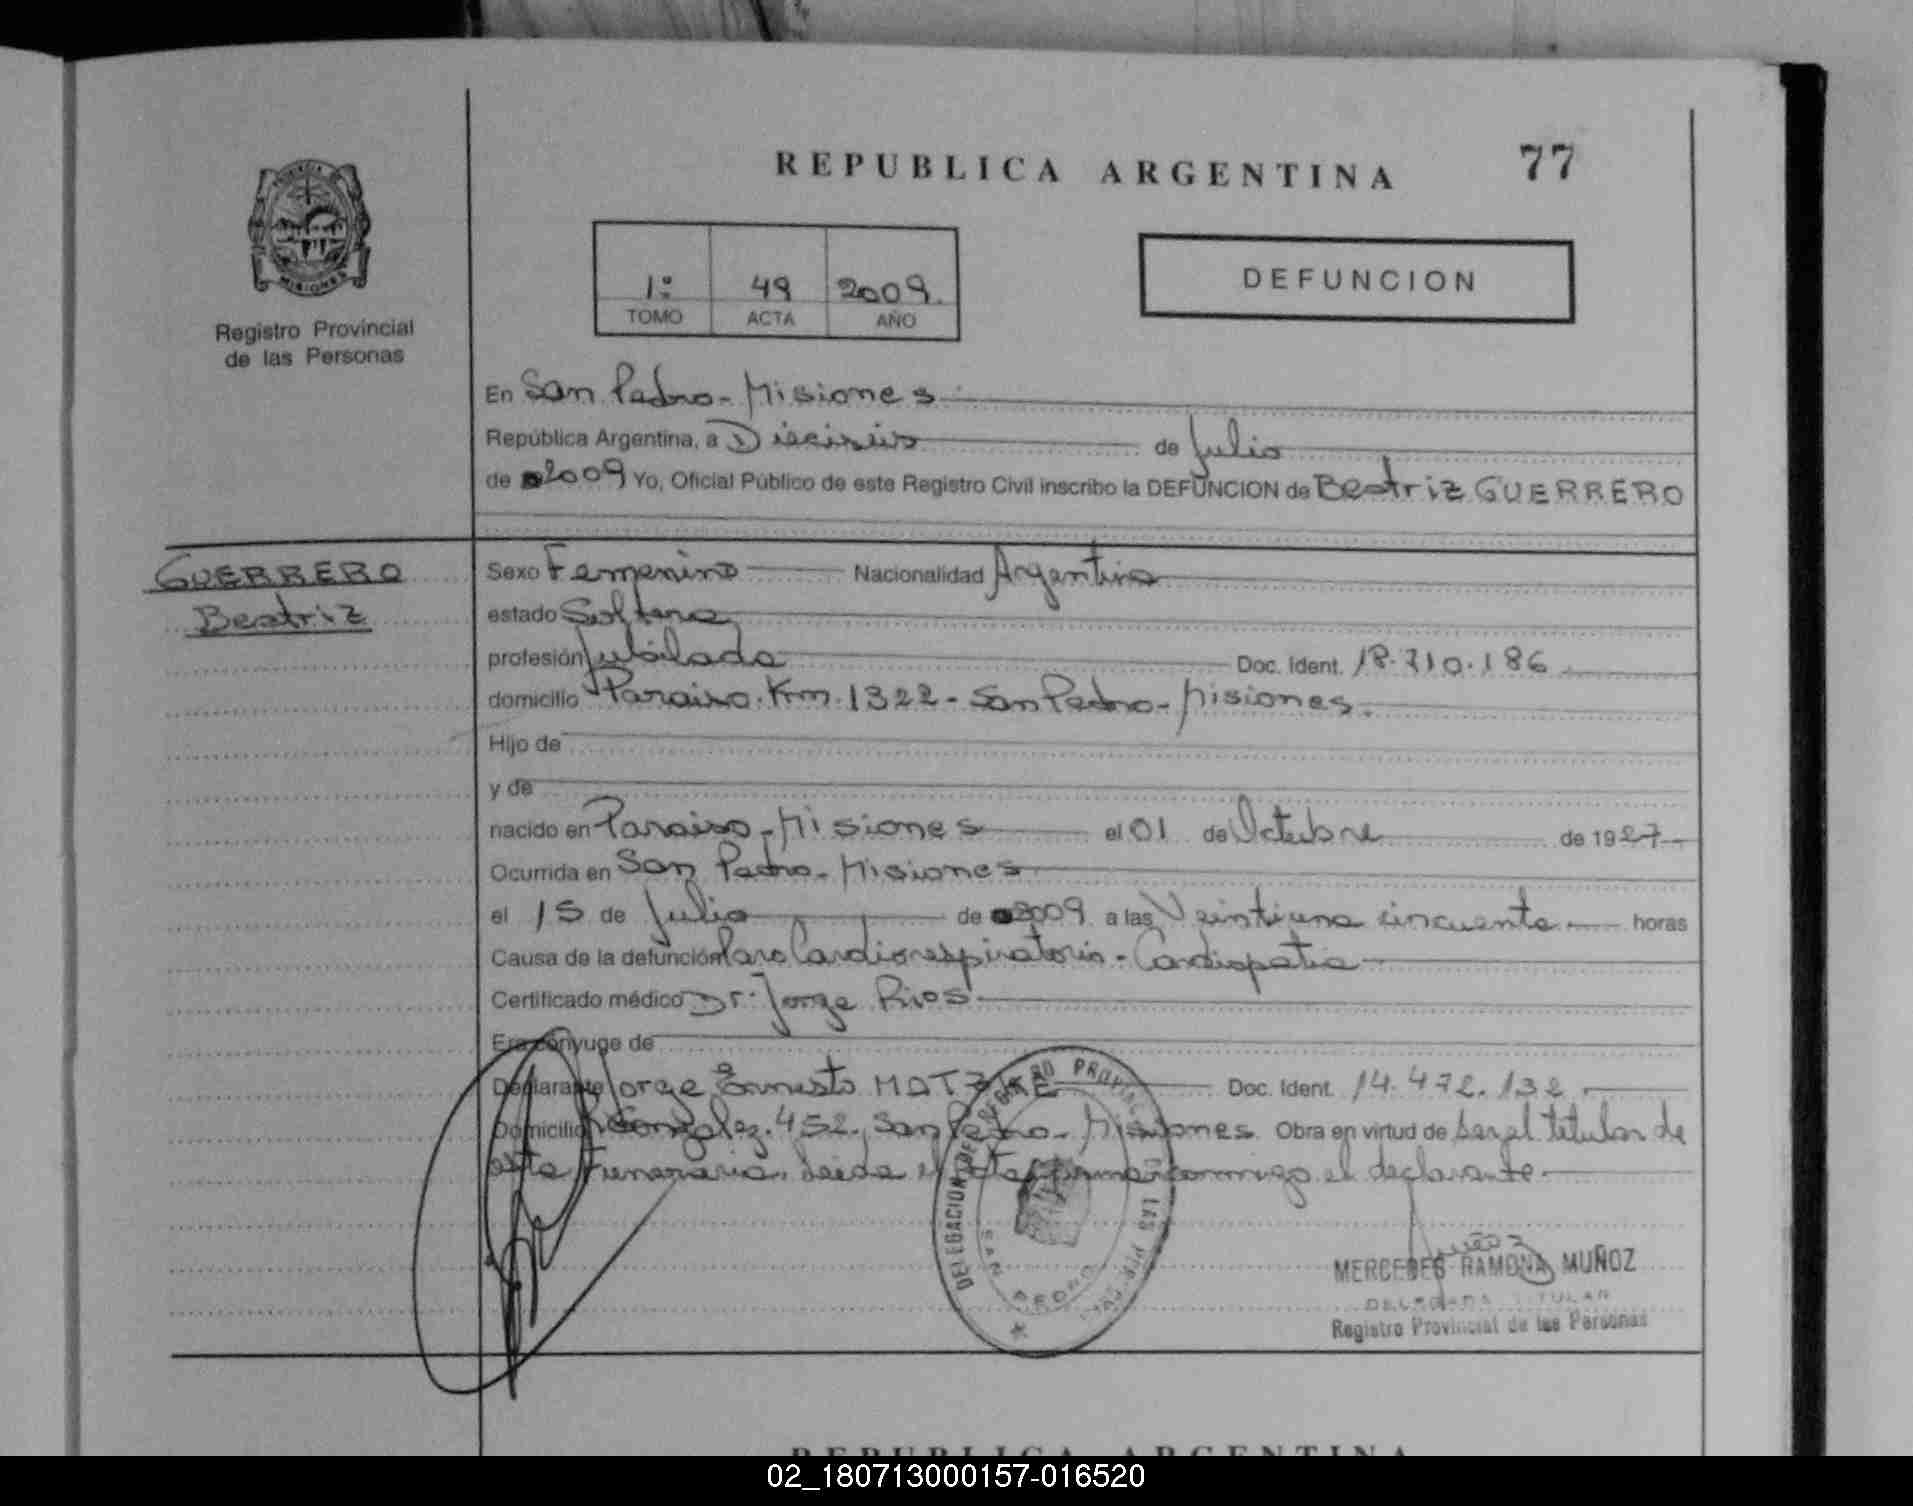 REPUBLICA ARGENTINA
77
1º 49 2009.
TOMO ACTA AÑO
DEFUNCION
MISIONES
Registro Provincial
de las Personas
En San Pedro - Misiones
República Argentina, a Dieciseis de Julio
de 2009 Yo, Oficial Público de este Registro Civil inscribo la DEFUNCION de Beatriz GUERRERO
GUERRERO
Beatriz
Sexo Femenino Nacionalidad Argentina
estado Soltera
profesión Jubilada Doc. Ident. 18.710.186
domicilio Paraiso. Km. 1322 - San Pedro - Misiones.
Hijo de
y de
nacido en Paraiso - Misiones el 01 de Octubre de 1927
Ocurrida en San Pedro - Misiones
el 15 de Julio de 2009 a las Veintiuna cincuenta horas
Causa de la defunción Paro Cardiorespiratorio - Cardiopatia
Certificado médico Dr. Jorge Rios
Era cónyuge de
Declarante Jorge Ernesto Doc. Ident. 14.472.132
Domicilio Gonzalez. 452. San Pedro - Misiones. Obra en virtud de ser el titular de
esta Funeraria. Leida el firma conmigo el declarante.
DELEGACION DEL REGISTRO PROVINCIAL DE LAS PERSONAS
SAN PEDRO
MERCEDES RAMONA MUÑOZ
DELEGADA TITULAR
Registro Provincial de las Personas
REPUBLICA ARGENTINA
02_180713000157-016520